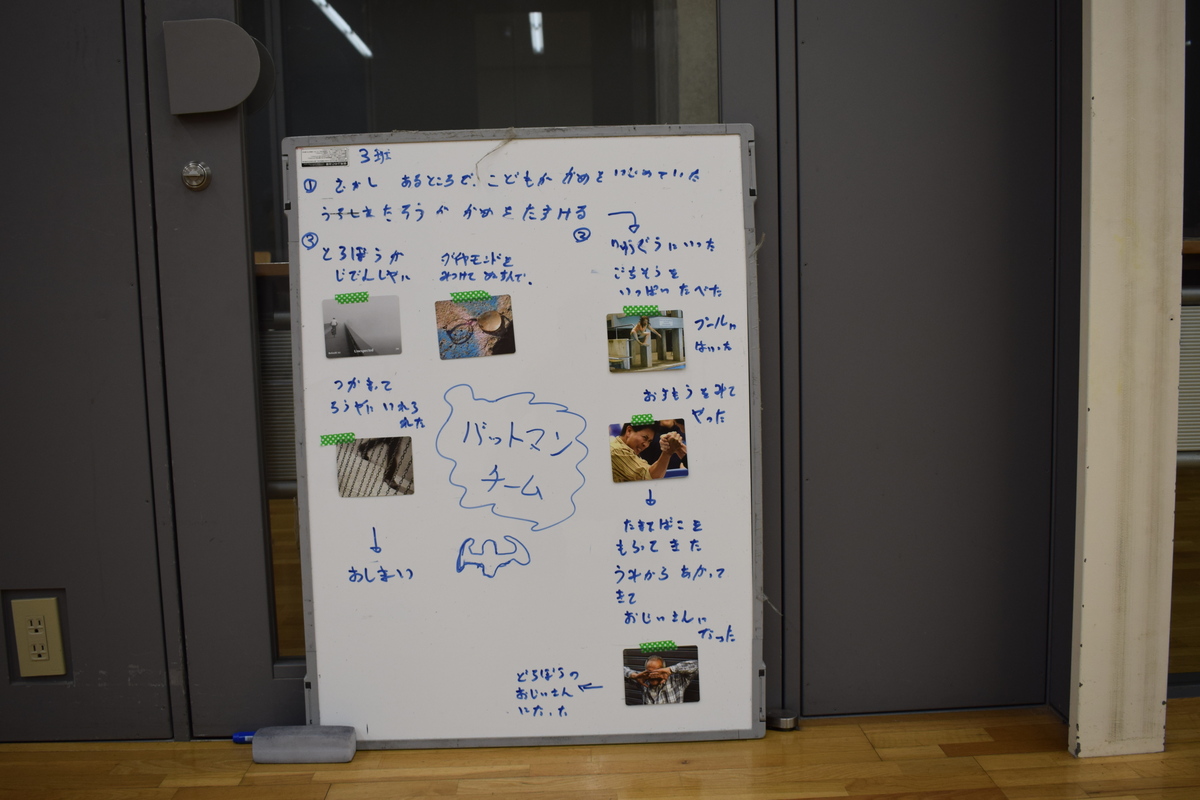 3班
① むかし あるところで、こどもが かめを いじめていた
うちした たろうが かめを たすける
②
りゅうぐうに いった
ごちそうを
いっぱい たべた
プールに
はいった
おすもうをみて
やった
↓
たまてばこを
もらってきた
うみから あがって
きて
おじいさんに
なった
どろぼうの
おじいさん
になった
③
どろぼうが
じでんしゃに
ダイヤモンドを
みつけて ぬすんで、
つかまって
ろうやに いれら
れた
↓
おしまい
バットマン
チーム